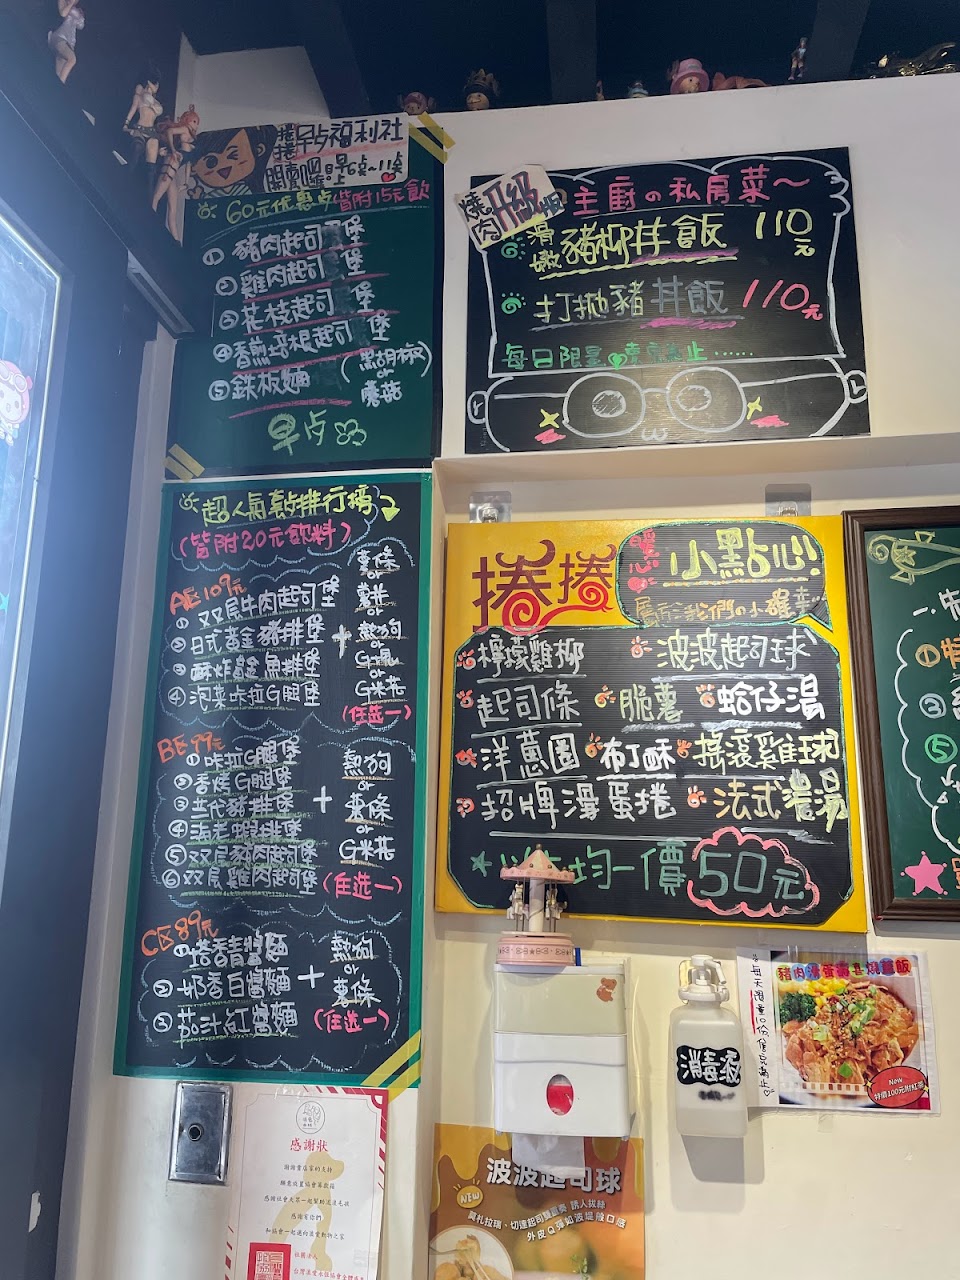 捲捲早占福利社
開賣囉!早6点~11点
60元优惠占皆附15元飲
①豬肉起司堡
②雞肉起司堡
③花枝起司堡
④香煎培根起司堡
⑤鉄板麵(黑胡椒or蘑菇)
早占
燒肉升級版
主廚の私房菜~
滑嫩豬柳丼飯 110元
打拋豬丼飯 110元
每日限量 賣完為止......
超人氣點排行榜
(皆附20元飲料)
A区109元
①双层牛肉起司堡
②日式黃金豬排堡
③酥炸黃金魚排堡
④泡菜咔拉G腿堡
+
薯條
or
薯餅
or
熱狗
or
G塊
or
G米花
(任选一)
B区99元
①咔拉G腿堡
②香烤G腿堡
③芒代豬排堡
④海老蝦排堡
⑤双层豬肉起司堡
⑥双层雞肉起司堡
+
熱狗
or
薯條
or
G米花
(任选一)
C区89元
①塔香青醬麵
②奶香白醬麵
③茄汁紅醬麵
+
熱狗
or
薯條
(任选一)
捲捲
小點心!
屬於我們の小確幸
檸檬雞柳 波波起司球
起司條 脆薯 蛤仔湯
洋蔥圈 布丁酥 搖滾雞球
招牌湯蛋捲 法式濃湯
均一價50元
①
②
⑤
消毒液
每天限量10份,售完為止
豬肉滑蛋蓋燒飯
New
特價100元附紅茶
感謝狀
波波起司球
NEW
莫札拉瑞、切達起司雙重奏 誘人拔絲
外皮Q彈如波堤般口感